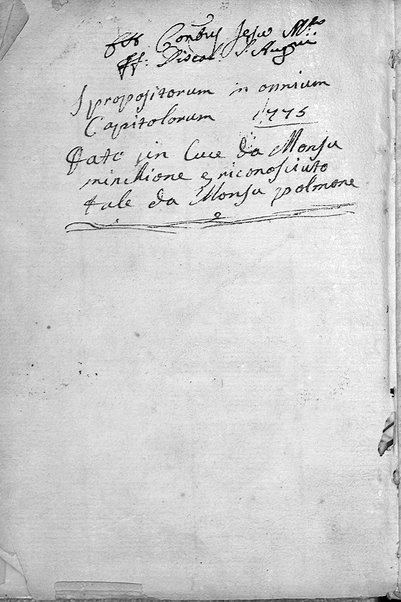 Conbus Jesu M.
ff: Discal: S. Augni
Spropositorum in omnium
Capitolorum 1775
Dato in Luce da Monsu
minchione e riconosciuto
tale da Monsu polmone